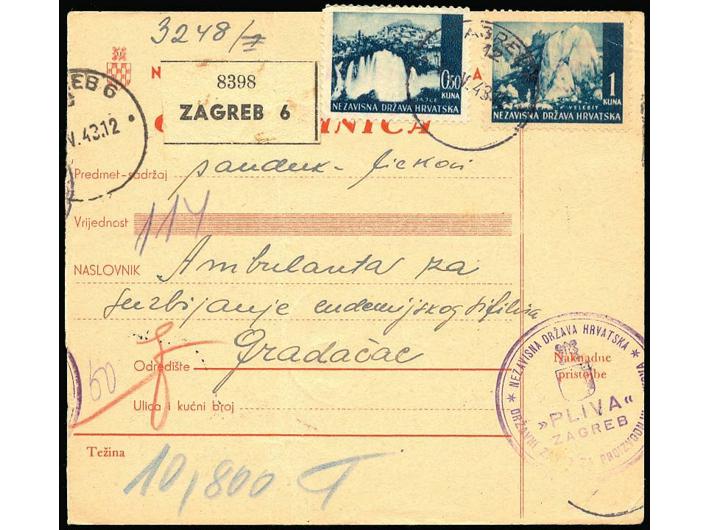 3248/I
8398
ZAGREB 6
JAJCE
0.50
KUNA
NEZAVISNA DRŽAVA HRVATSKA
VELEBIT
1
KUNA
NEZAVISNA DRŽAVA HRVATSKA
ZAGREB
12
V.43
EB 6
V.43.12
NICA
Predmet-sadržaj sanduk - lijekovi
Vrijednost 114
NASLOVNIK Ambulanta za
suzbijanje endemijskog sifilisa
Odredište Gradačac
Ulica i kućni broj
50
Naknadne
pristojbe
* NEZAVISNA DRŽAVA HRVATSKA *
DRŽAVNI
PROIZVODNJ
»PLIVA«
ZAGREB
Težina
10,800